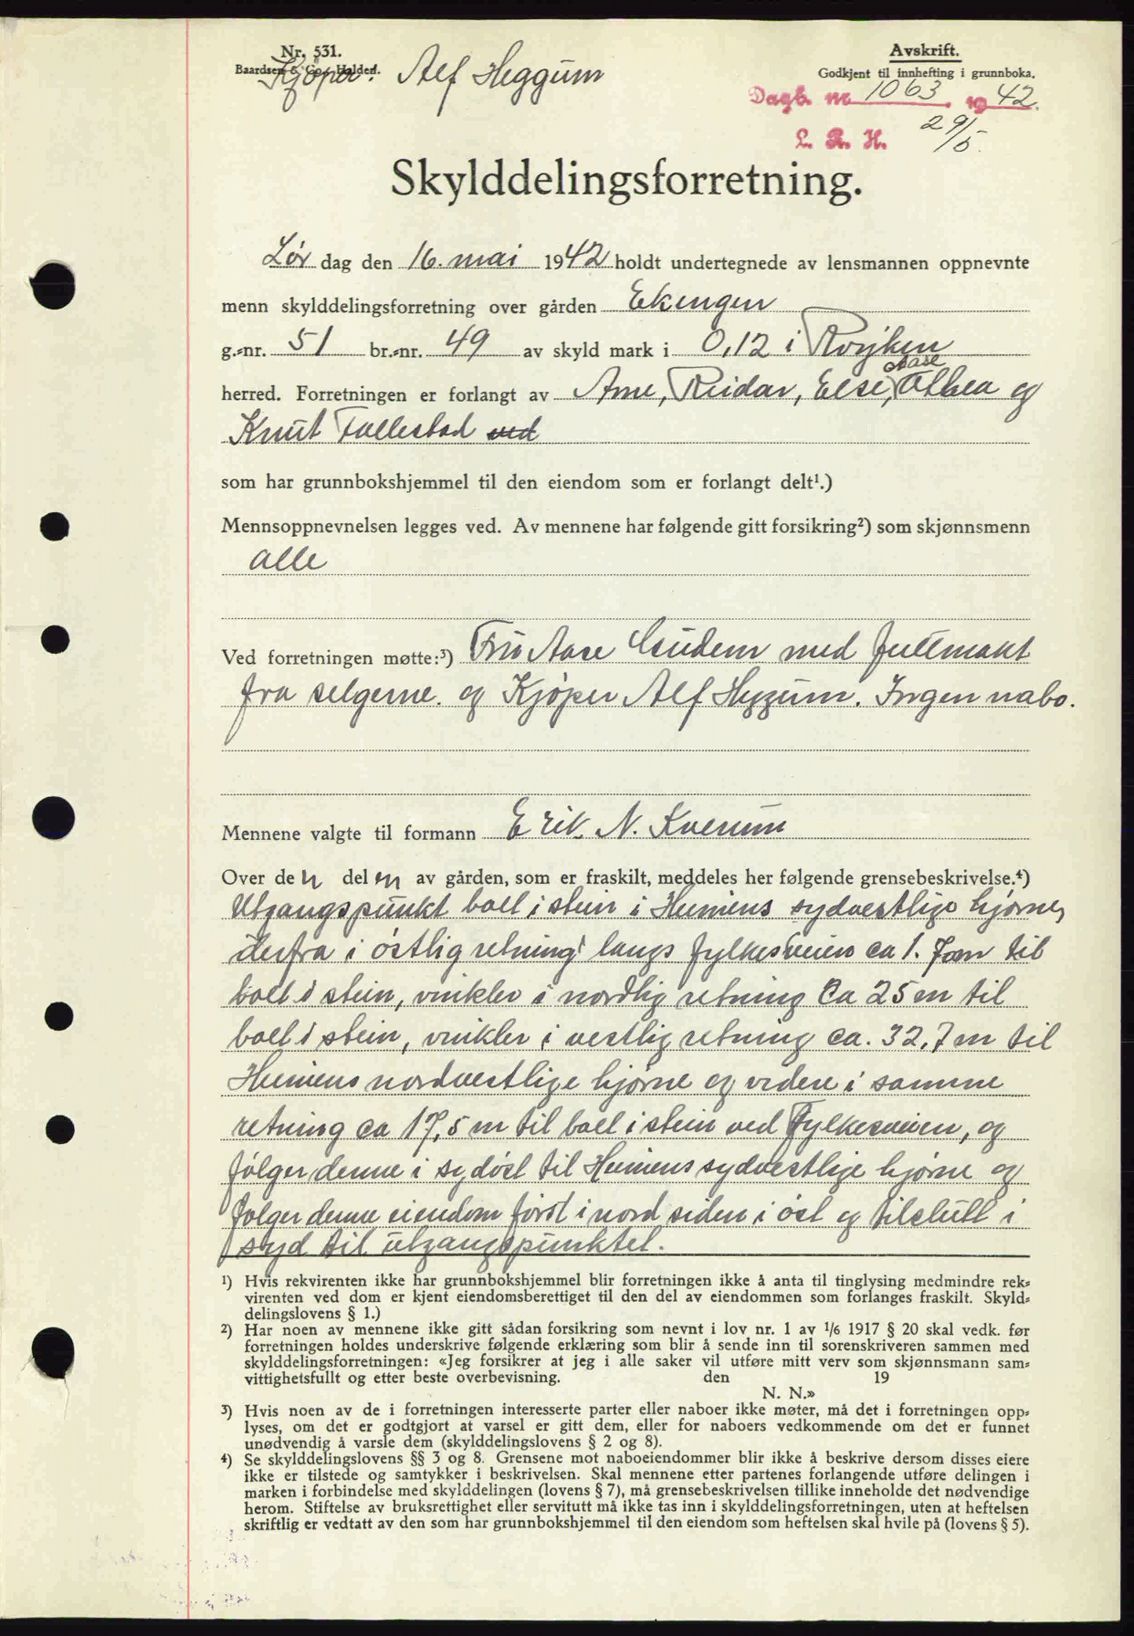 Nr. 531.
Baardsen & Co., Halden.
Kjøper: Alf Heggum
Avskrift.
Godkjent til innhefting i grunnboka.
Dagb. nr. 1063 1942.
L. R. H. 29/5
Skylddelingsforretning.
Lør dag den 16. mai 1942 holdt undertegnede av lensmannen oppnevnte
menn skylddelingsforretning over gården Ekengen
g.-nr. 51 br.-nr. 49 av skyld mark i 0,12 i Røyken
Aase
herred. Forretningen er forlangt av Arne, Reidar, Else, Othea og
Knut Follestad ved
som har grunnbokshjemmel til den eiendom som er forlangt delt¹.)
Mennsoppnevnelsen legges ved. Av mennene har følgende gitt forsikring²) som skjønnsmenn
alle
Ved forretningen møtte:³) Fru Aase med fullmakt
fra selgerne. og Kjøper Alf Heggum. Ingen nabo.
Mennene valgte til formann Erik N. Kverum
Over den delen av gården, som er fraskilt, meddeles her følgende grensebeskrivelse.⁴)
Utgangspunkt bolt i stein i Heimens sydvestlige hjørne,
derfra i østlig retning langs fylkesveien ca 1.7om til
bolt i stein, vinkler i nordlig retning Ca 25 m til
bolt i stein, vinkler i vestlig retning ca. 32,7 m til
Heimens nordvestlige hjørne og videre i samme
retning ca 17,5 m til bolt i stein ved Fylkesveien, og
følger denne i sydøst til Heimens sydvestlige hjørne og
følger denne eiendom først i nord siden i øst og tilslutt i
syd til utgangspunktet.
¹) Hvis rekvirenten ikke har grunnbokshjemmel blir forretningen ikke å anta til tinglysing medmindre rek-
virenten ved dom er kjent eiendomsberettiget til den del av eiendommen som forlanges fraskilt. Skyld-
delingslovens § 1.)
²) Har noen av mennene ikke gitt sådan forsikring som nevnt i lov nr. 1 av ¹/₆ 1917 § 20 skal vedk. før
forretningen holdes underskrive følgende erklæring som blir å sende inn til sorenskriveren sammen med
skylddelingsforretningen: «Jeg forsikrer at jeg i alle saker vil utføre mitt verv som skjønnsmann sam-
vittighetsfullt og etter beste overbevisning. den 19
N. N.»
³) Hvis noen av de i forretningen interesserte parter eller naboer ikke møter, må det i forretningen opp-
lyses, om det er godtgjort at varsel er gitt dem, eller for naboers vedkommende om det er funnet
unødvendig å varsle dem (skylddelingslovens § 2 og 8).
⁴) Se skylddelingslovens §§ 3 og 8. Grensene mot naboeiendommer blir ikke å beskrive dersom disses eiere
ikke er tilstede og samtykker i beskrivelsen. Skal mennene etter partenes forlangende utføre delingen i
marken i forbindelse med skylddelingen (lovens § 7), må grensebeskrivelsen tillike inneholde det nødvendige
herom. Stiftelse av bruksrettighet eller servitutt må ikke tas inn i skylddelingsforretningen, uten at heftelsen
skriftlig er vedtatt av den som har grunnbokshjemmel til den eiendom som heftelsen skal hvile på (lovens § 5).